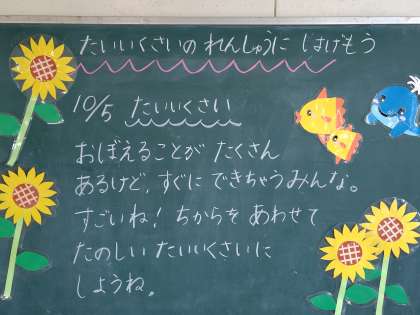 たいいくさいの れんしゅうに はげもう
10/5 たいいくさい
おぼえることが たくさん
あるけど、すぐに できちゃうみんな。
すごいね! ちからを あわせて
たのしい たいいくさいに
しようね。